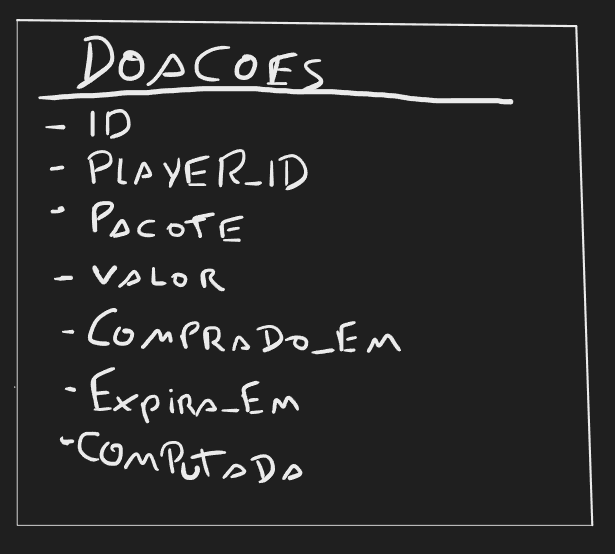 DOACOES
- ID
- PLAYER_ID
- PACOTE
- VALOR
- COMPRADO_EM
- EXPIRA_EM
- COMPUTADA